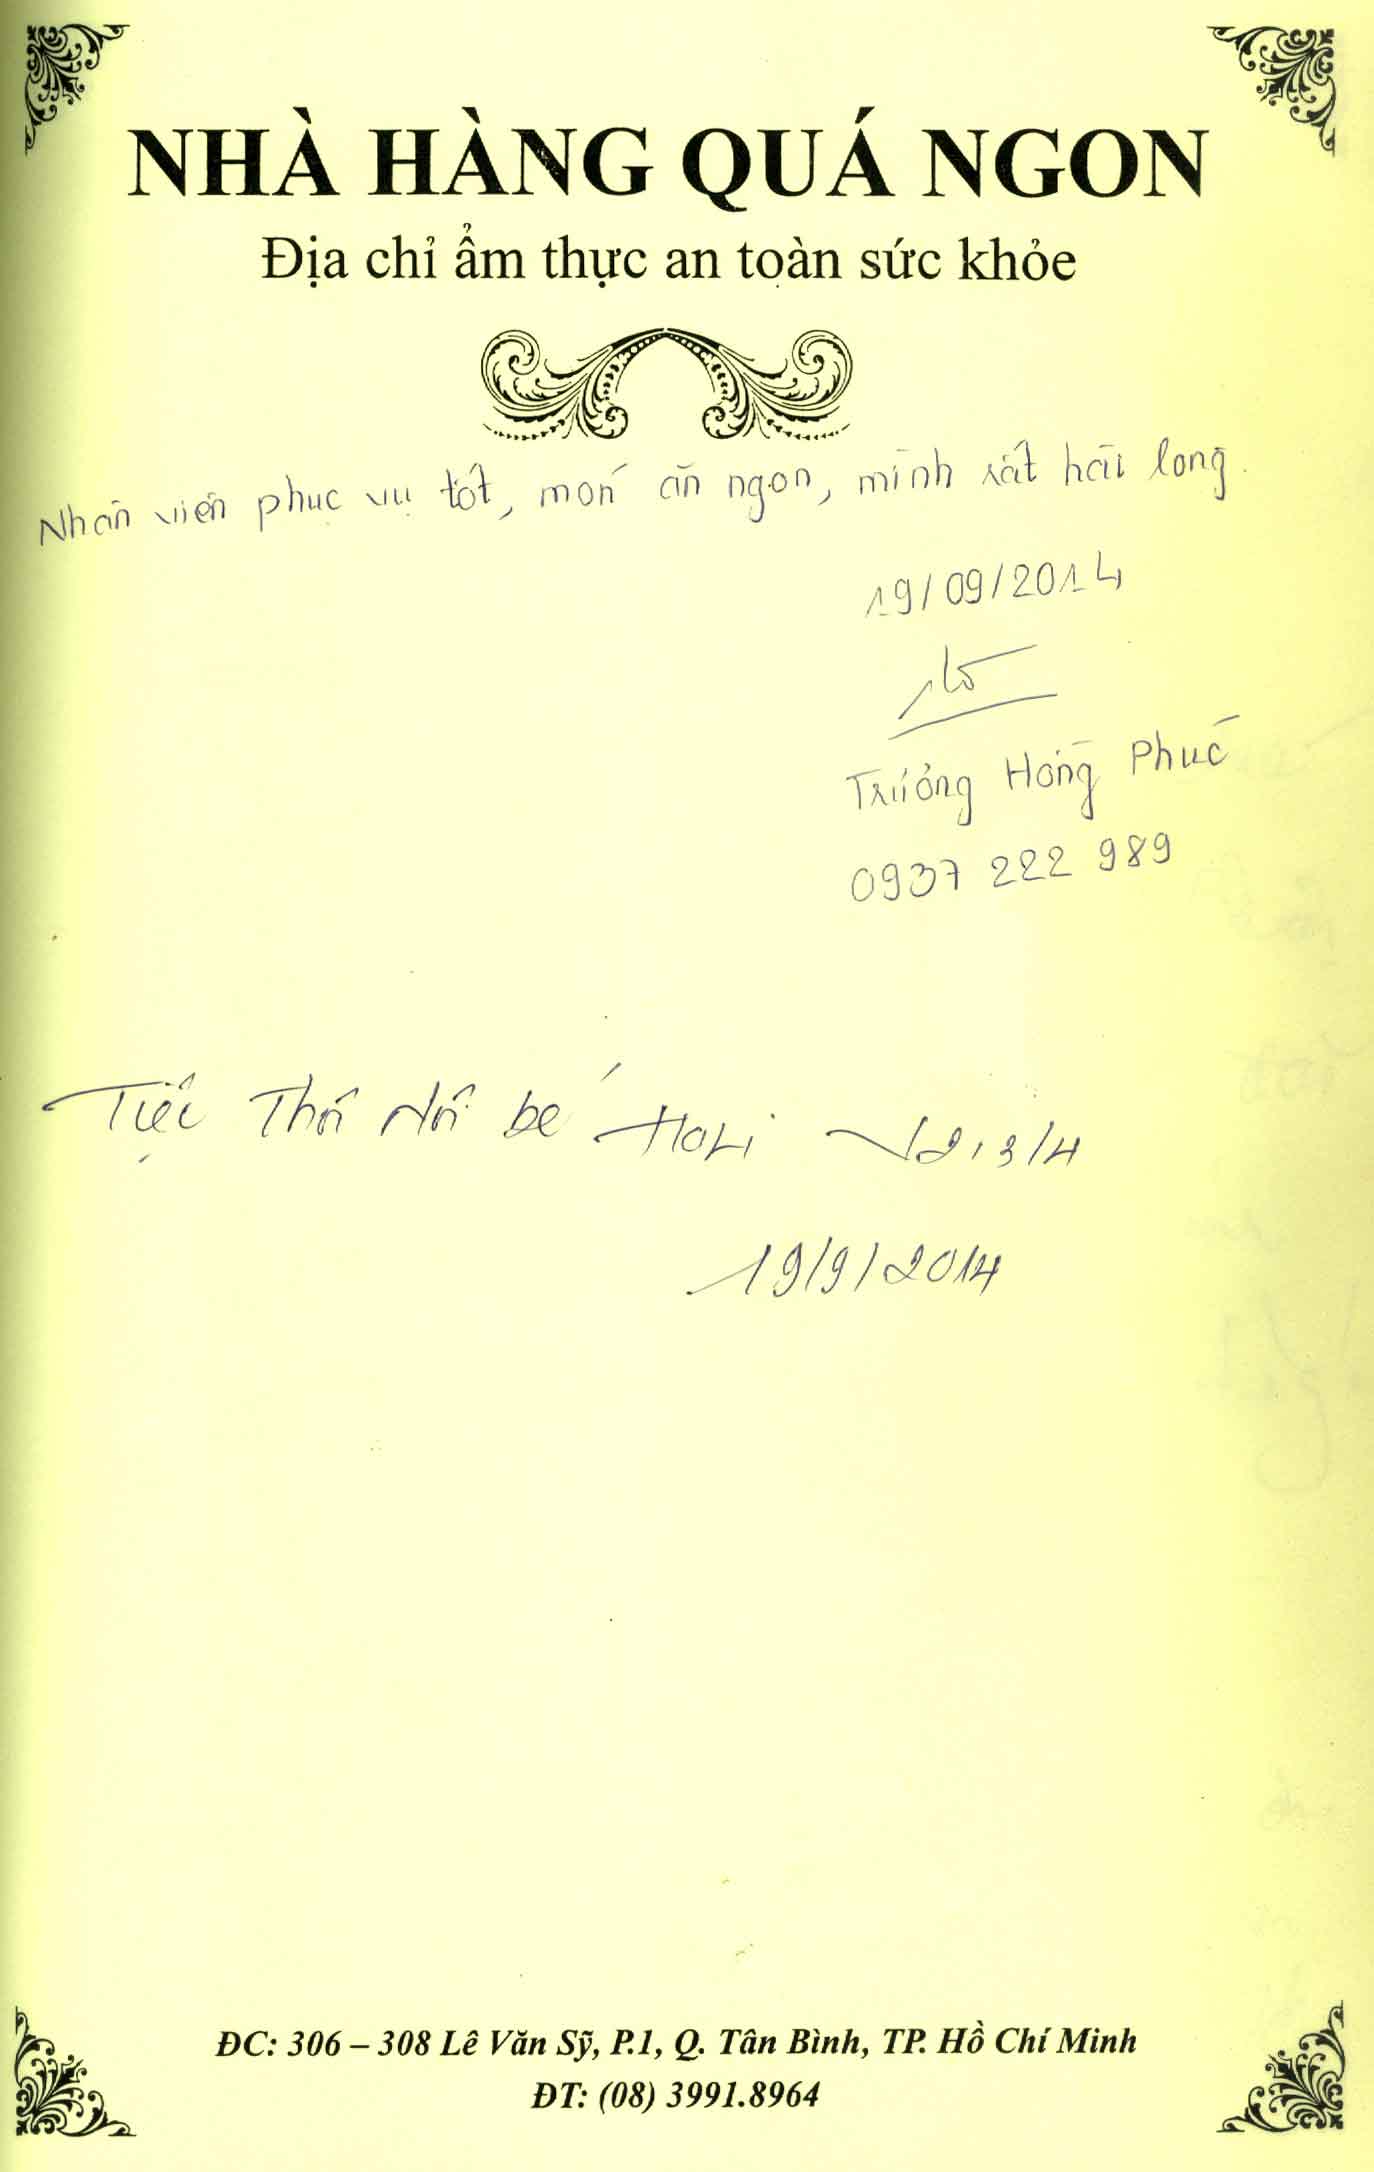 NHÀ HÀNG QUÁ NGON
Địa chỉ ẩm thực an toàn sức khỏe
Nhân viên phục vụ tốt, món ăn ngon, mình rất hài lòng.
19/09/2014
Trương Hồng Phúc
0937 222 989
Tiệc Thôi Nôi bé
19/9/2014
ĐC: 306 – 308 Lê Văn Sỹ, P.1, Q. Tân Bình, TP. Hồ Chí Minh
ĐT: (08) 3991.8964